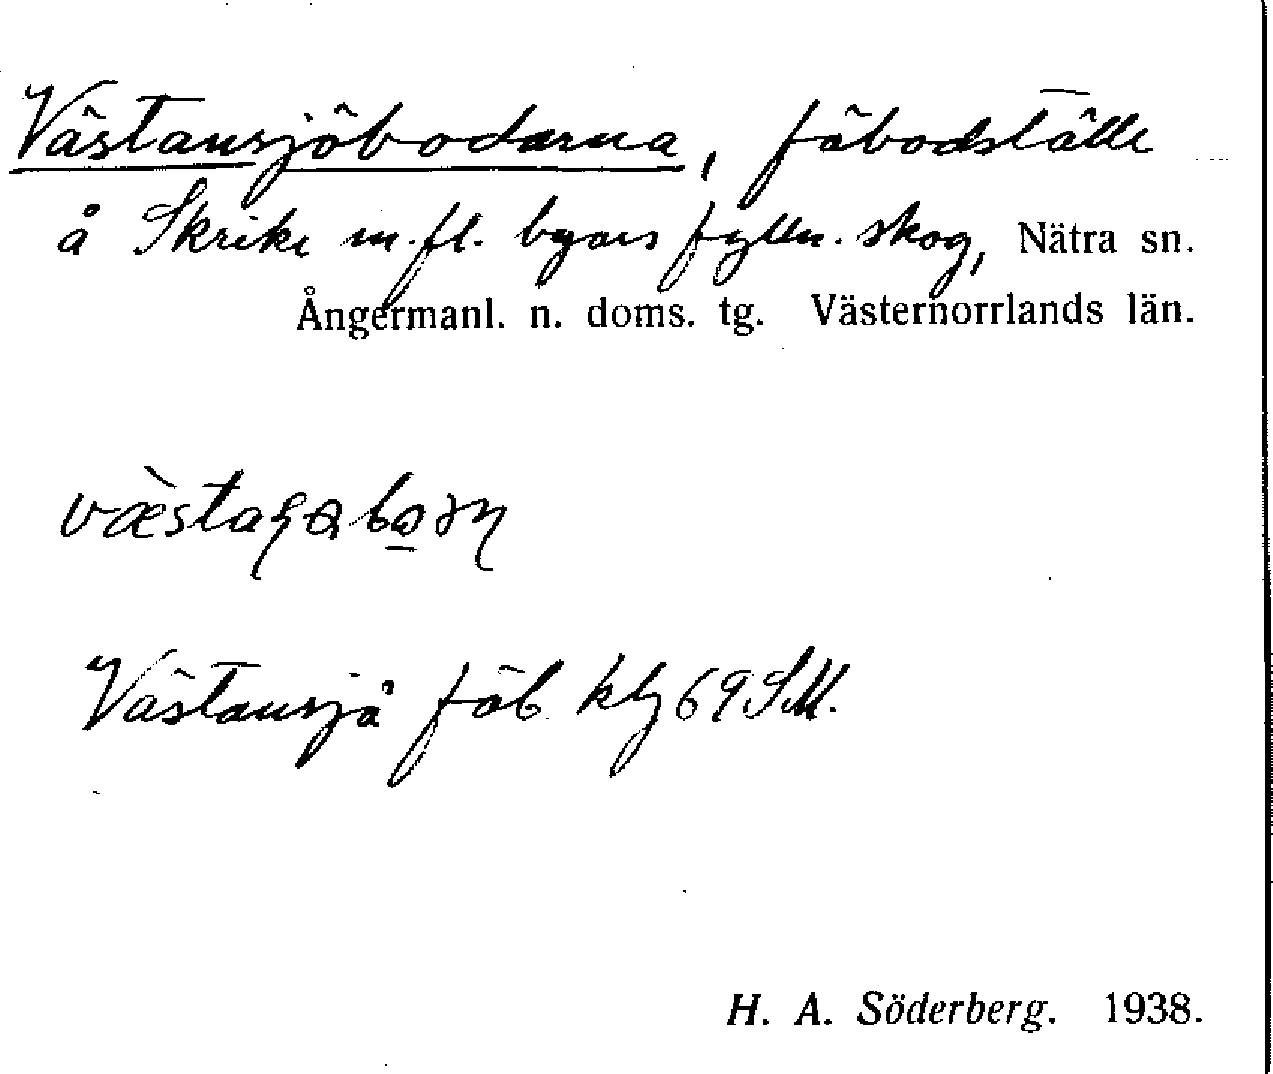 Västansjöbodarna, fäbodställe
å Skrike m.fl. byars fylln. skog, Nätra sn.
Ångermanl. n. doms. tg. Västernorrlands län.
Västansjö fäb. 69 SM.
H. A. Söderberg. 1938.